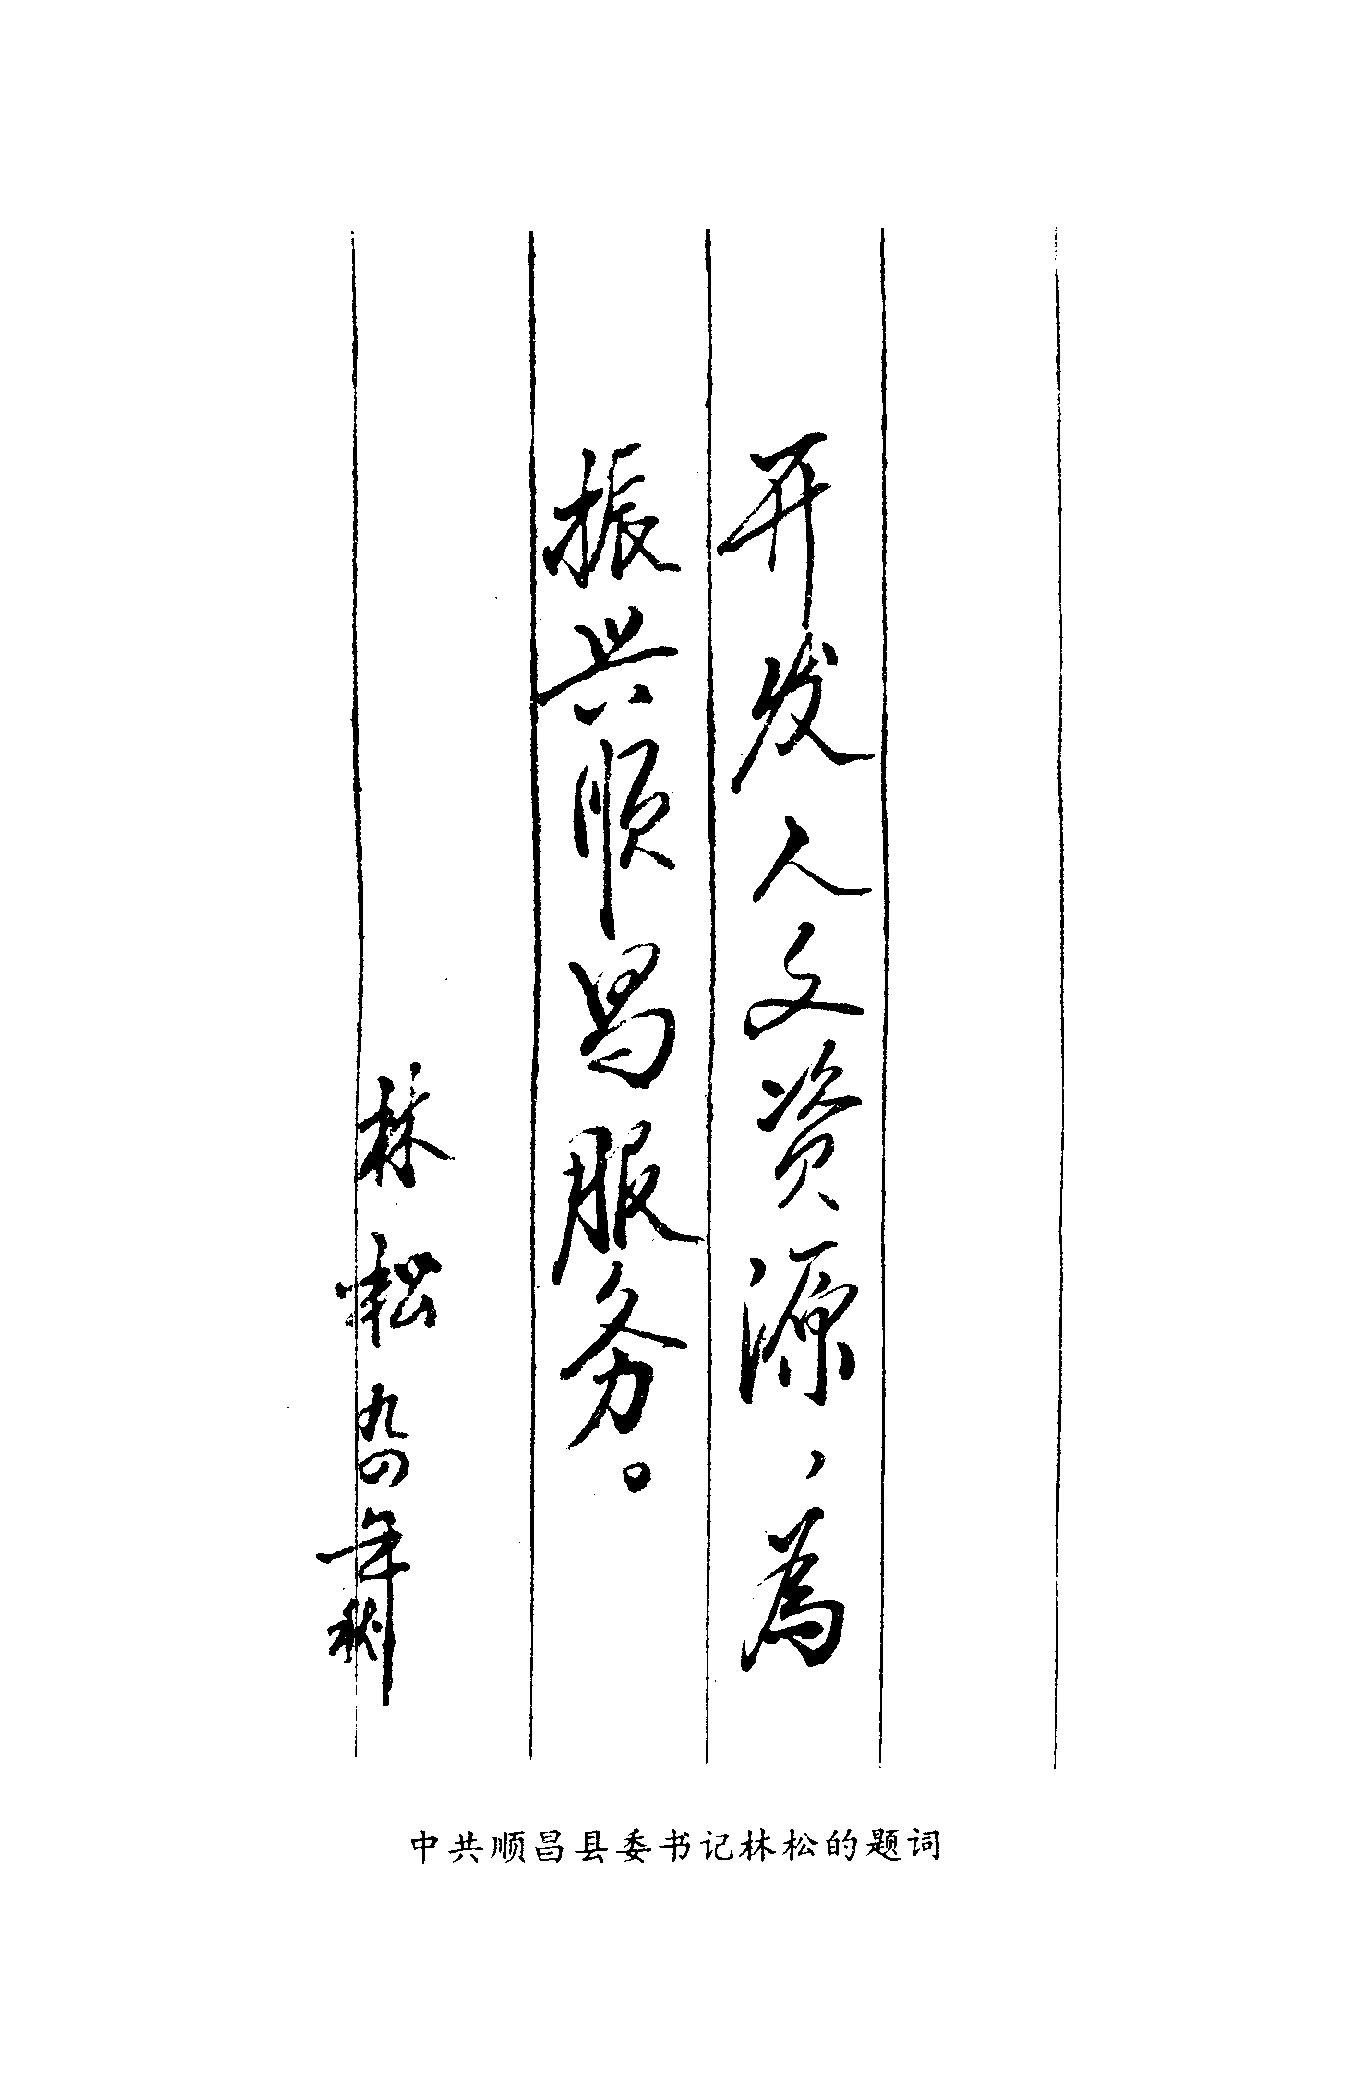 开发人文资源，为
振兴顺昌服务。
林松 九四年秋
中共顺昌县委书记林松的题词